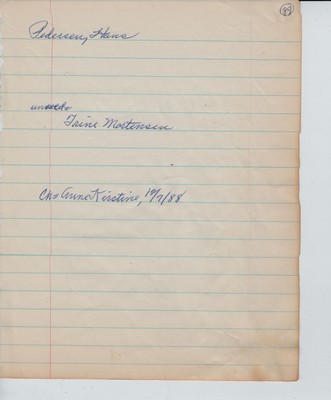 89
Pedersen, Hans
Trine Mortensen
Ch= Anne Kirstine, 19/7/88